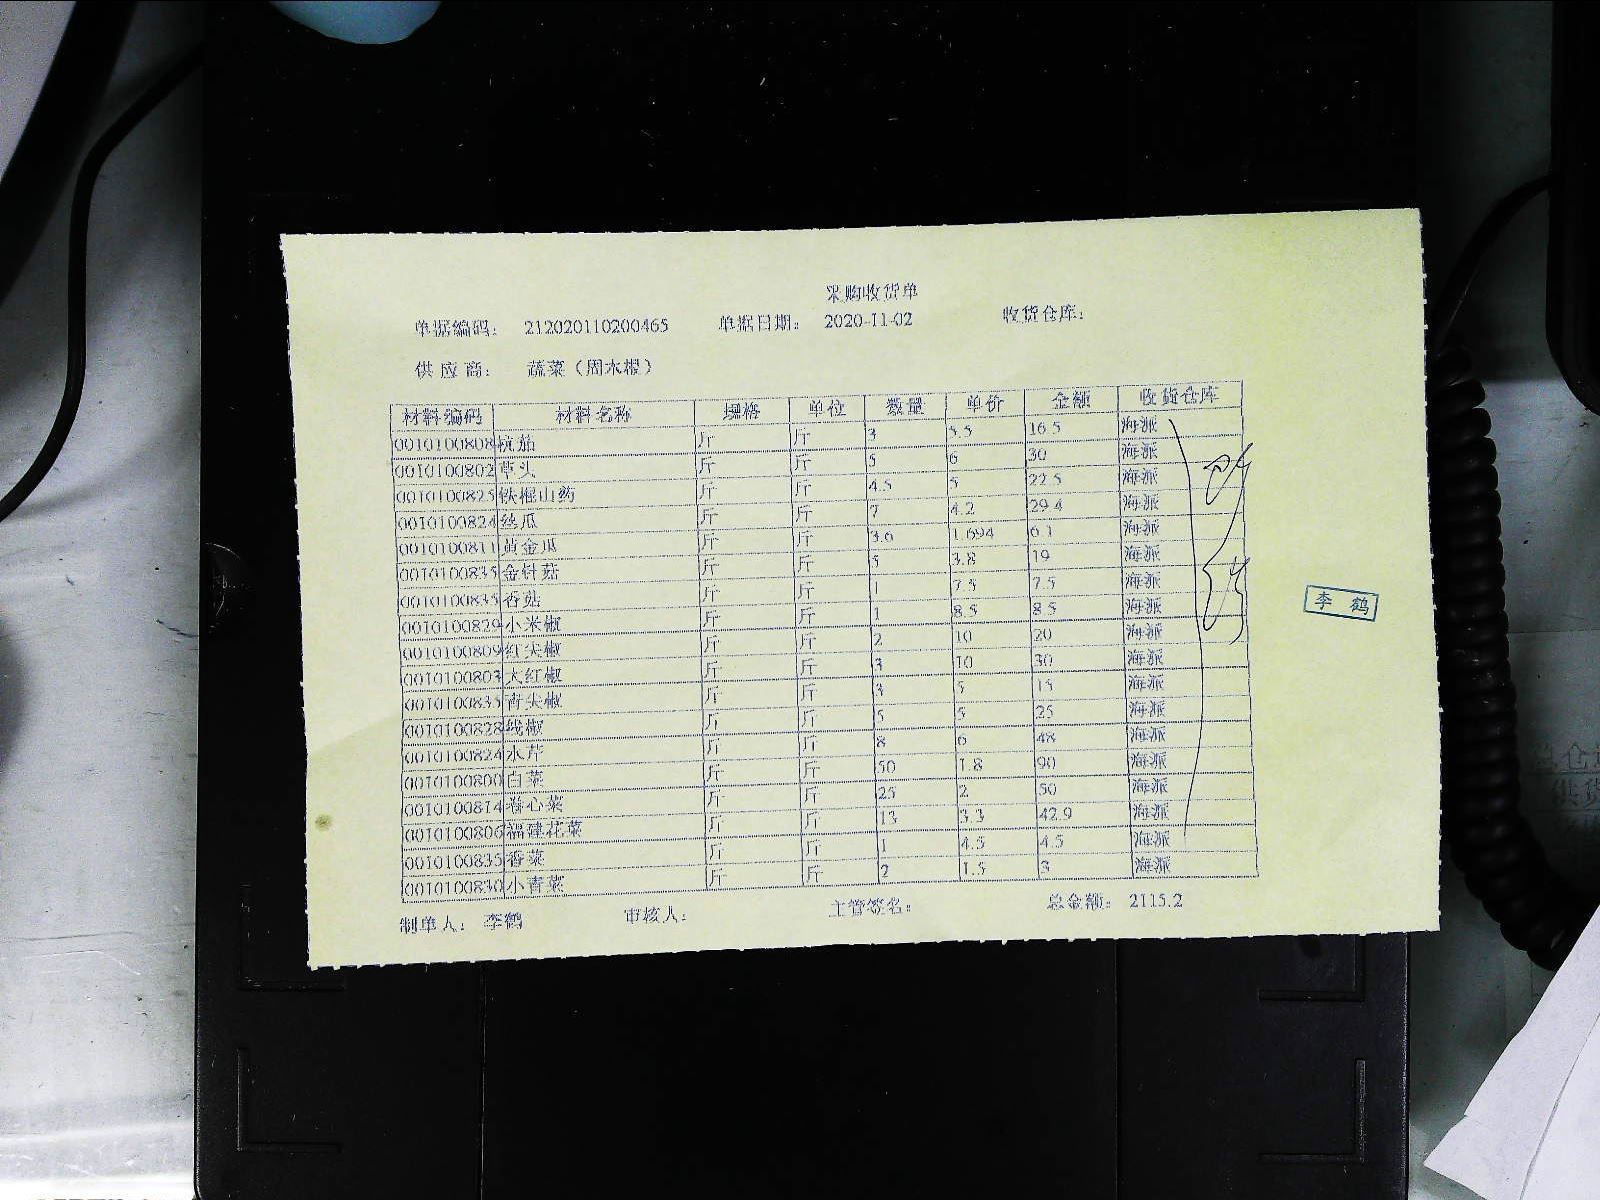 采购收货单
单据编码： 212020110200465 单据日期： 2020-11-02 收货仓库：
供应商： 蔬菜（周木根）
材料编码 材料名称 规格 单位 数量 单价 金额 收货仓库
0010100808 杭茄 斤 斤 3 5.5 16.5 海派
0010100802 草头 斤 斤 5 6 30 海派
0010100825 铁棍山药 斤 斤 4.5 5 22.5 海派
0010100824 丝瓜 斤 斤 7 4.2 29.4 海派
0010100811 黄金瓜 斤 斤 3.6 1.694 6.1 海派
0010100835 金针菇 斤 斤 5 3.8 19 海派
0010100835 香菇 斤 斤 1 7.5 7.5 海派
0010100829 小米椒 斤 斤 1 8.5 8.5 海派
0010100809 红尖椒 斤 斤 2 10 20 海派
0010100803 大红椒 斤 斤 3 10 30 海派
0010100835 青尖椒 斤 斤 3 5 15 海派
0010100828 线椒 斤 斤 5 5 25 海派
0010100824 水芹 斤 斤 8 6 48 海派
0010100800 白菜 斤 斤 50 1.8 90 海派
0010100814 卷心菜 斤 斤 25 2 50 海派
0010100806 福建花菜 斤 斤 13 3.3 42.9 海派
0010100835 香菜 斤 斤 1 4.5 4.5 海派
0010100830 小青菜 斤 斤 2 1.5 3 海派
李鹤
制单人： 李鹤 审核人： 主管签名： 总金额： 2115.2